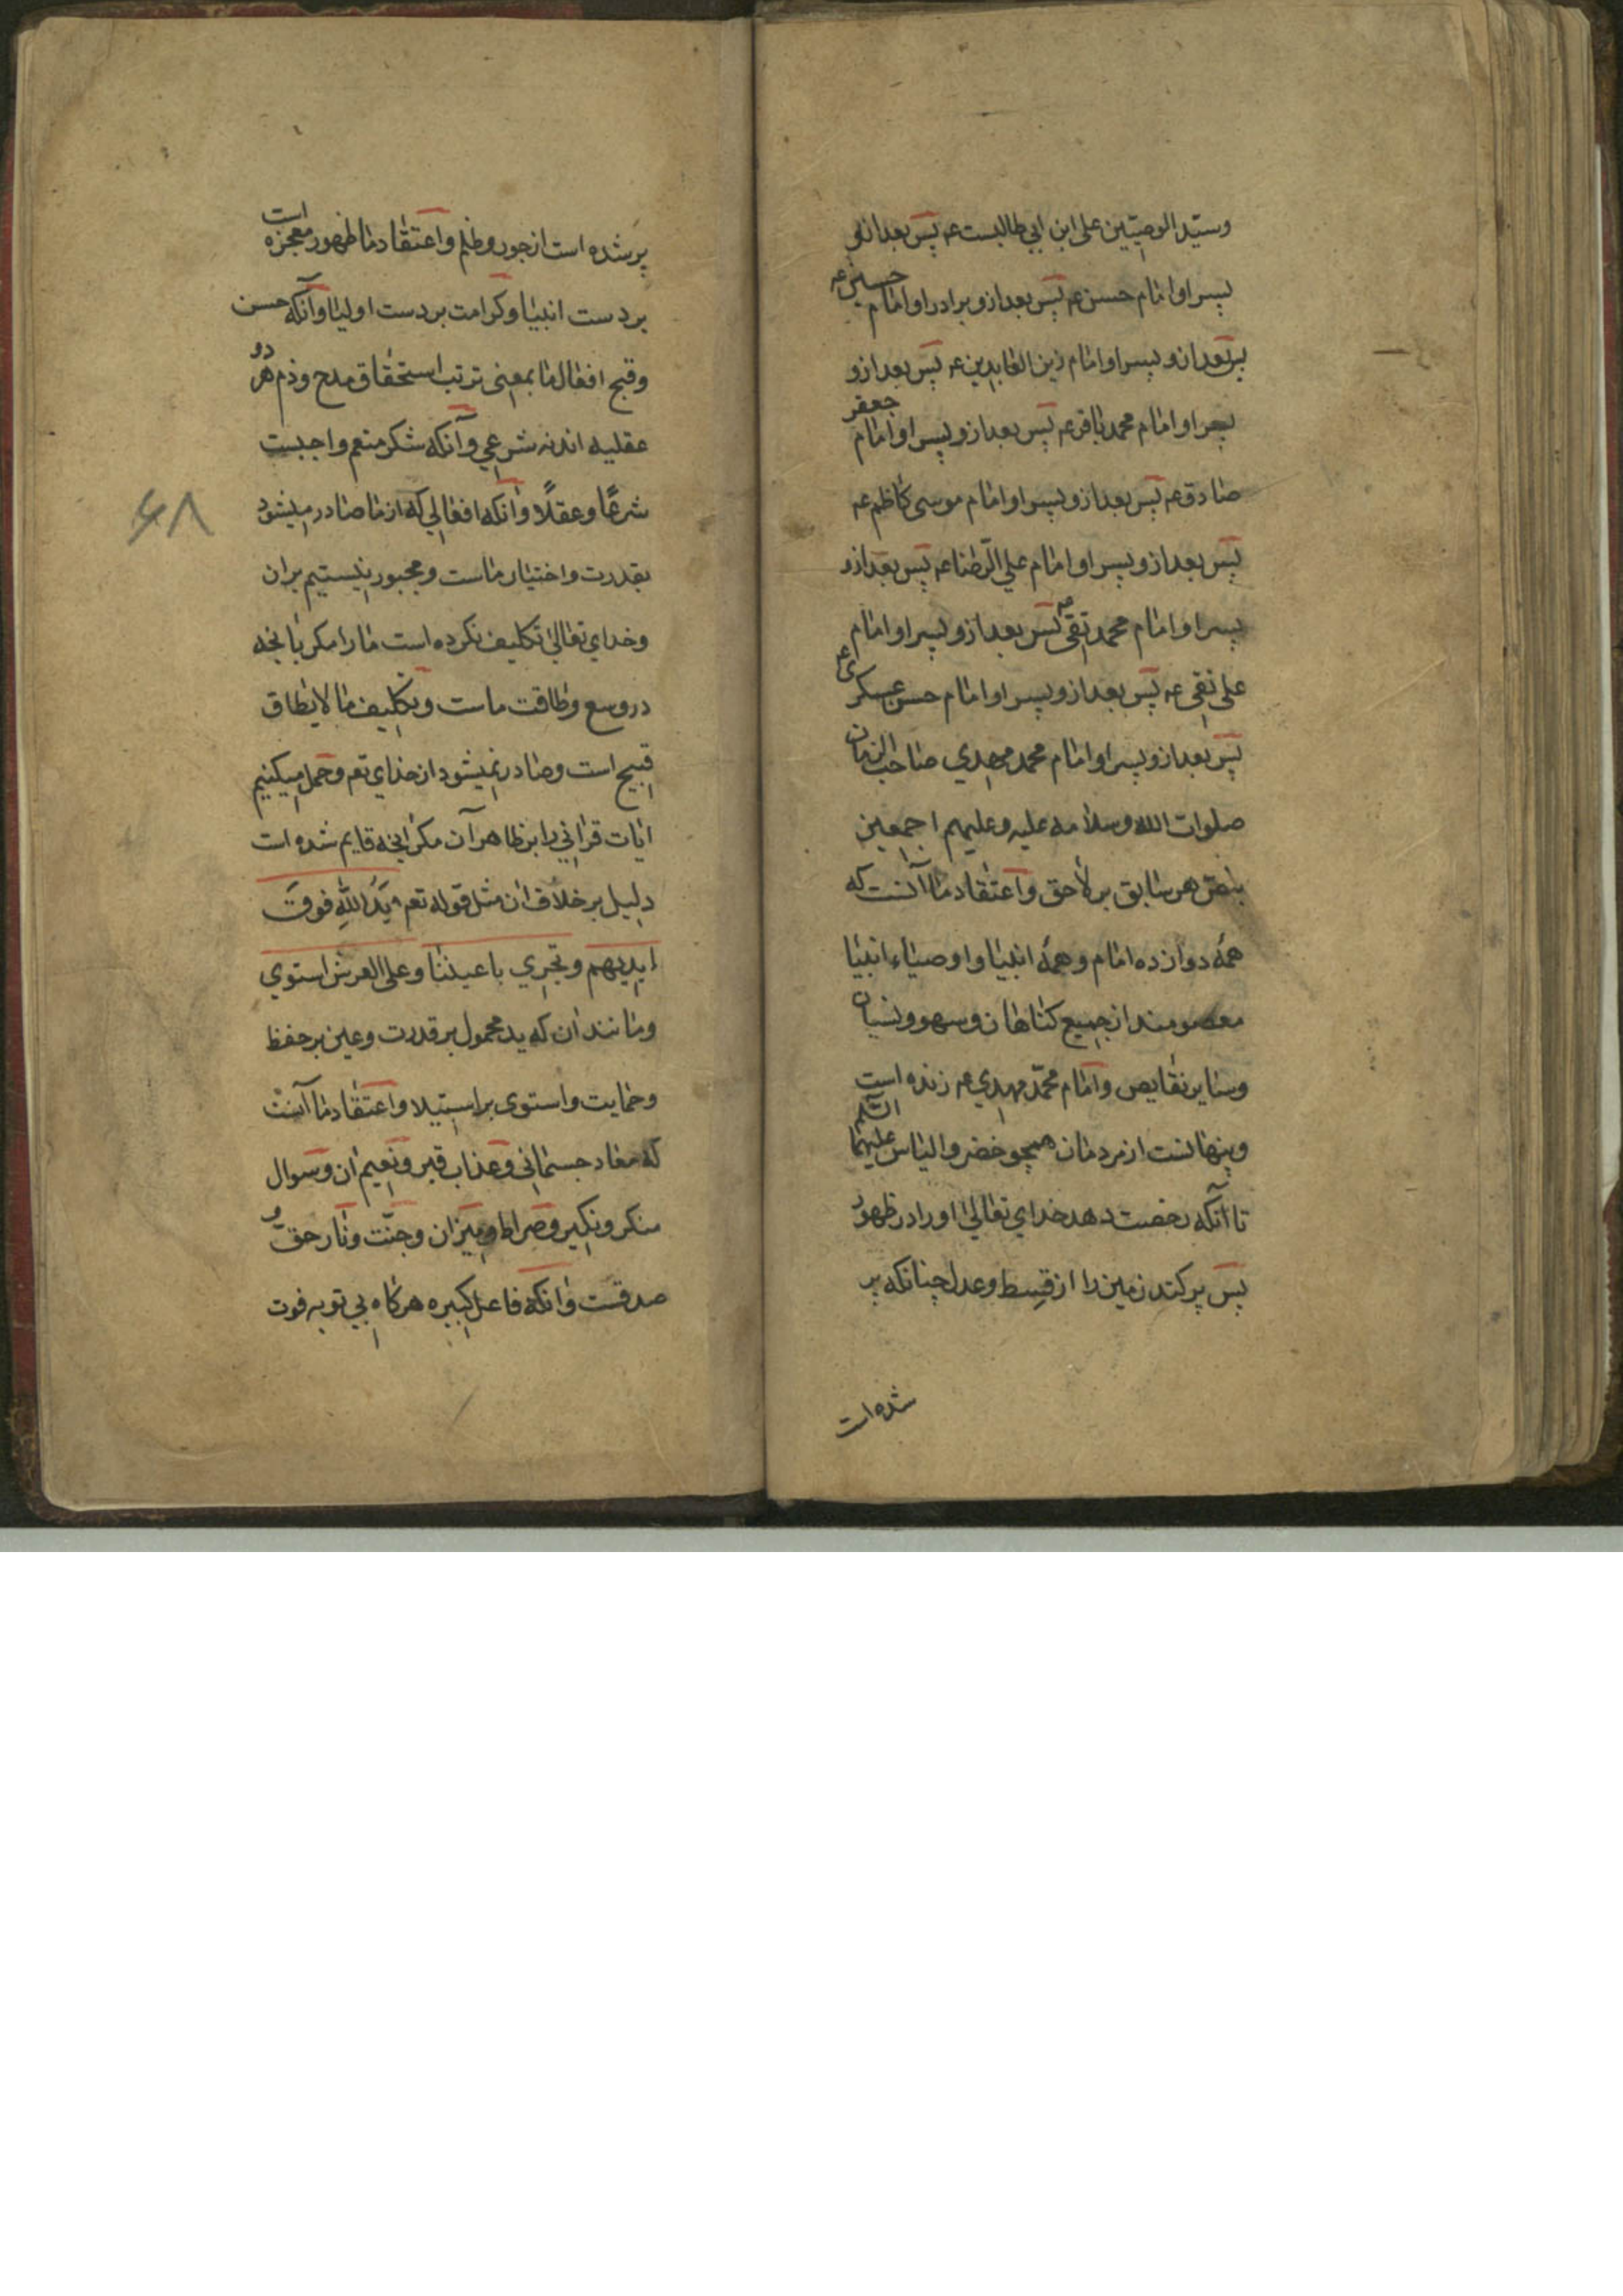 وسیّد الوصیّین علی ابن ابی طالبست عم پس بعد ازو
پسر او امام حسن عم پس بعد ازو برادر او امام حسین عم
پس بعد ازو پسر او امام زین العابدین عم پس بعد ازو
پسر او امام محمد باقر عم پس بعد ازو پسر او امام جعفر
صادق عم پس بعد ازو پسر او امام موسی کاظم عم
پس بعد ازو پسر او امام علي الرّضا عم پس بعد ازو
پسر او امام محمد تقی عم پس بعد ازو پسر او امام
علی نقی عم پس بعد ازو پسر او امام حسن عسکری عم
پس بعد ازو پسر او امام محمد مهدي صاحب الزمان
صلوات الله وسلامه علیه وعلیهم اجمعین
بنصّ هر سابق بر لاحق واعتقاد ما آنست که
همهٔ دوازده امام وهمهٔ انبیا واوصیاء انبیا
معصومند از جمیع کناهان وسهو ونسیان
وسایر نقایص وامام محمّد مهدي عم زنده است
وپنهانست از مردمان همچو خضر والیاس علیهما السّلم
تا آنکه رخصت دهد خداي تعالیٰ او را در ظهور
پس پر کند زمین را از قسط وعدل چنانکه پر
شده است
پر شده است از جور وظلم واعتقاد ما ظهور معجزه است
بر دست انبیا وکرامت بر دست اولیا وآنکه حسن
وقبح افعال ما بمعنی ترتب استحقاق مدح وذم هر دو
عقلیه اند نه شرعي وآنکه شکر منعم واجبست
شرعًا وعقلًا وآنکه افعالي که از ما صادر میشود
بقدرت واختیار ماست ومجبور نیستیم بران
وخداي تعالیٰ تکلیف نکرده است ما را مکر بانچه
در وسع وطاقت ماست وتکلیف ما لا یطاق
قبیح است وصادر نمیشود از خداي تعم وحمل میکنیم
ایات قراني را بر ظاهر آن مکر انچه قایم شده است
دلیل بر خلاف ان مثل قوله تعم یَدُ اللهِ فَوقَ
ایدیهم وتجري باعیننا وعلی العرش استوي
ومانند ان که ید محمول بر قدرت وعین بر حفظ
وحمایت واستوی بر استیلا واعتقاد ما آنست
که معاد جسمانی وعذاب قبر ونعیم ان وسوال
منکر ونکیر وصراط ومیزان وجنّت ونار حقّ و
صدقست وانکه فاعل کبیره هرکاه بي توبه فوت
۶۸